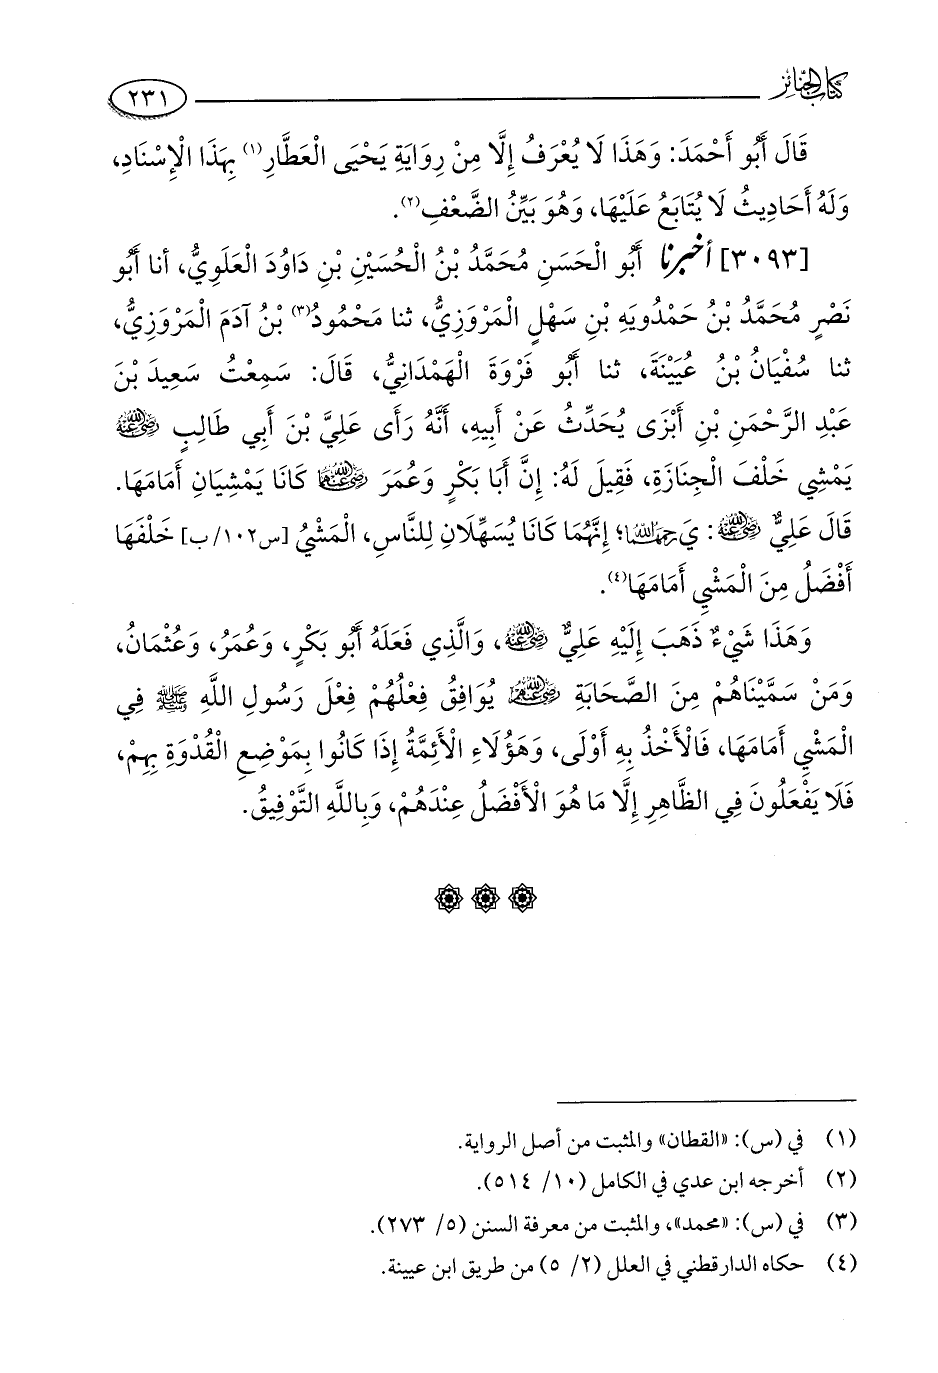 كتاب الجنائز ٢٣١
قَالَ أَبُو أَحْمَدَ: وَهَذَا لَا يُعْرَفُ إِلَّا مِنْ رِوَايَةِ يَحْيَى الْعَطَّارِ(١) بِهَذَا الْإِسْنَادِ،
وَلَهُ أَحَادِيثُ لَا يُتَابَعُ عَلَيْهَا، وَهُوَ بَيِّنُ الضَّعْفِ(٢).
[٣٠٩٣] أخبرنا أَبُو الْحَسَنِ مُحَمَّدُ بْنُ الْحُسَيْنِ بْنِ دَاوُدَ الْعَلَوِيُّ، أنا أَبُو
نَصْرٍ مُحَمَّدُ بْنُ حَمْدُويَهِ بْنِ سَهْلٍ الْمَرْوَزِيُّ، ثنا مَحْمُودُ(٣) بْنُ آدَمَ الْمَرْوَزِيُّ،
ثنا سُفْيَانُ بْنُ عُيَيْنَةَ، ثنا أَبُو فَرْوَةَ الْهَمْدَانِيُّ، قَالَ: سَمِعْتُ سَعِيدَ بْنَ
عَبْدِ الرَّحْمَنِ بْنِ أَبْزَى يُحَدِّثُ عَنْ أَبِيهِ، أَنَّهُ رَأَى عَلِيَّ بْنَ أَبِي طَالِبٍ رضي الله عنه
يَمْشِي خَلْفَ الْجِنَازَةِ، فَقِيلَ لَهُ: إِنَّ أَبَا بَكْرٍ وَعُمَرَ رضي الله عنهما كَانَا يَمْشِيَانِ أَمَامَهَا.
قَالَ عَلِيٌّ رضي الله عنه: يَرحمهما الله؛ إِنَّهُمَا كَانَا يُسَهِّلَانِ لِلنَّاسِ، الْمَشْيُ [س١٠٢/ب] خَلْفَهَا
أَفْضَلُ مِنَ الْمَشْيِ أَمَامَهَا(٤).
وَهَذَا شَيْءٌ ذَهَبَ إِلَيْهِ عَلِيٌّ رضي الله عنه، وَالَّذِي فَعَلَهُ أَبُو بَكْرٍ، وَعُمَرُ، وَعُثْمَانُ،
وَمَنْ سَمَّيْنَاهُمْ مِنَ الصَّحَابَةِ رضي الله عنهم يُوَافِقُ فِعْلُهُمْ فِعْلَ رَسُولِ اللَّهِ ﷺ فِي
الْمَشْيِ أَمَامَهَا، فَالْأَخْذُ بِهِ أَوْلَى، وَهَؤُلَاءِ الْأَئِمَّةُ إِذَا كَانُوا بِمَوْضِعِ الْقُدْوَةِ بِهِمْ،
فَلَا يَفْعَلُونَ فِي الظَّاهِرِ إِلَّا مَا هُوَ الْأَفْضَلُ عِنْدَهُمْ، وَبِاللَّهِ التَّوْفِيقُ.
(١) في (س): «القطان» والمثبت من أصل الرواية.
(٢) أخرجه ابن عدي في الكامل (١٠/ ٥١٤).
(٣) في (س): «محمد»، والمثبت من معرفة السنن (٥/ ٢٧٣).
(٤) حكاه الدارقطني في العلل (٢/ ٥) من طريق ابن عيينة.